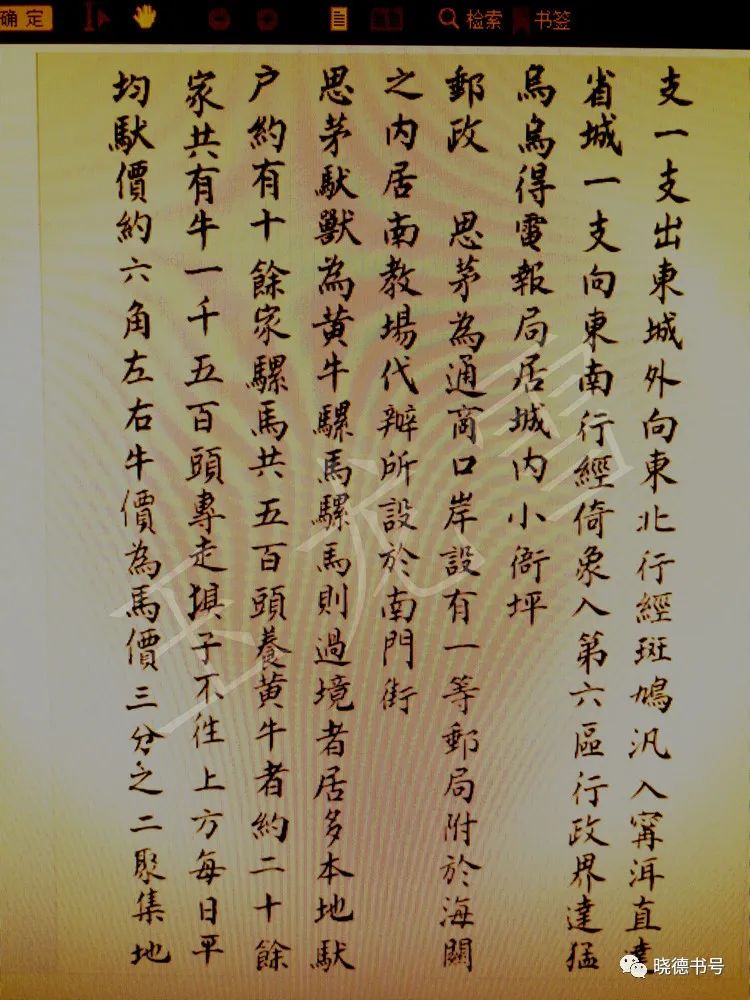 确定
检索
书签
支一支出東城外向東北行經斑鳩汛入寗洱直達
省城一支向東南行經倚象入第六區行政界達猛
烏烏得電報局居城内小衙坪
郵政　思茅為通商口岸設有一等郵局附於海關
之内居南教場代辦所設於南門街
思茅馱獸為黄牛騾馬騾馬則過境者居多本地馱
户約有十餘家騾馬共五百頭養黄牛者約二十餘
家共有牛一千五百頭專走埧子不徃上方每日平
均馱價約六角左右牛價為馬價三分之二聚集地
晓德书号